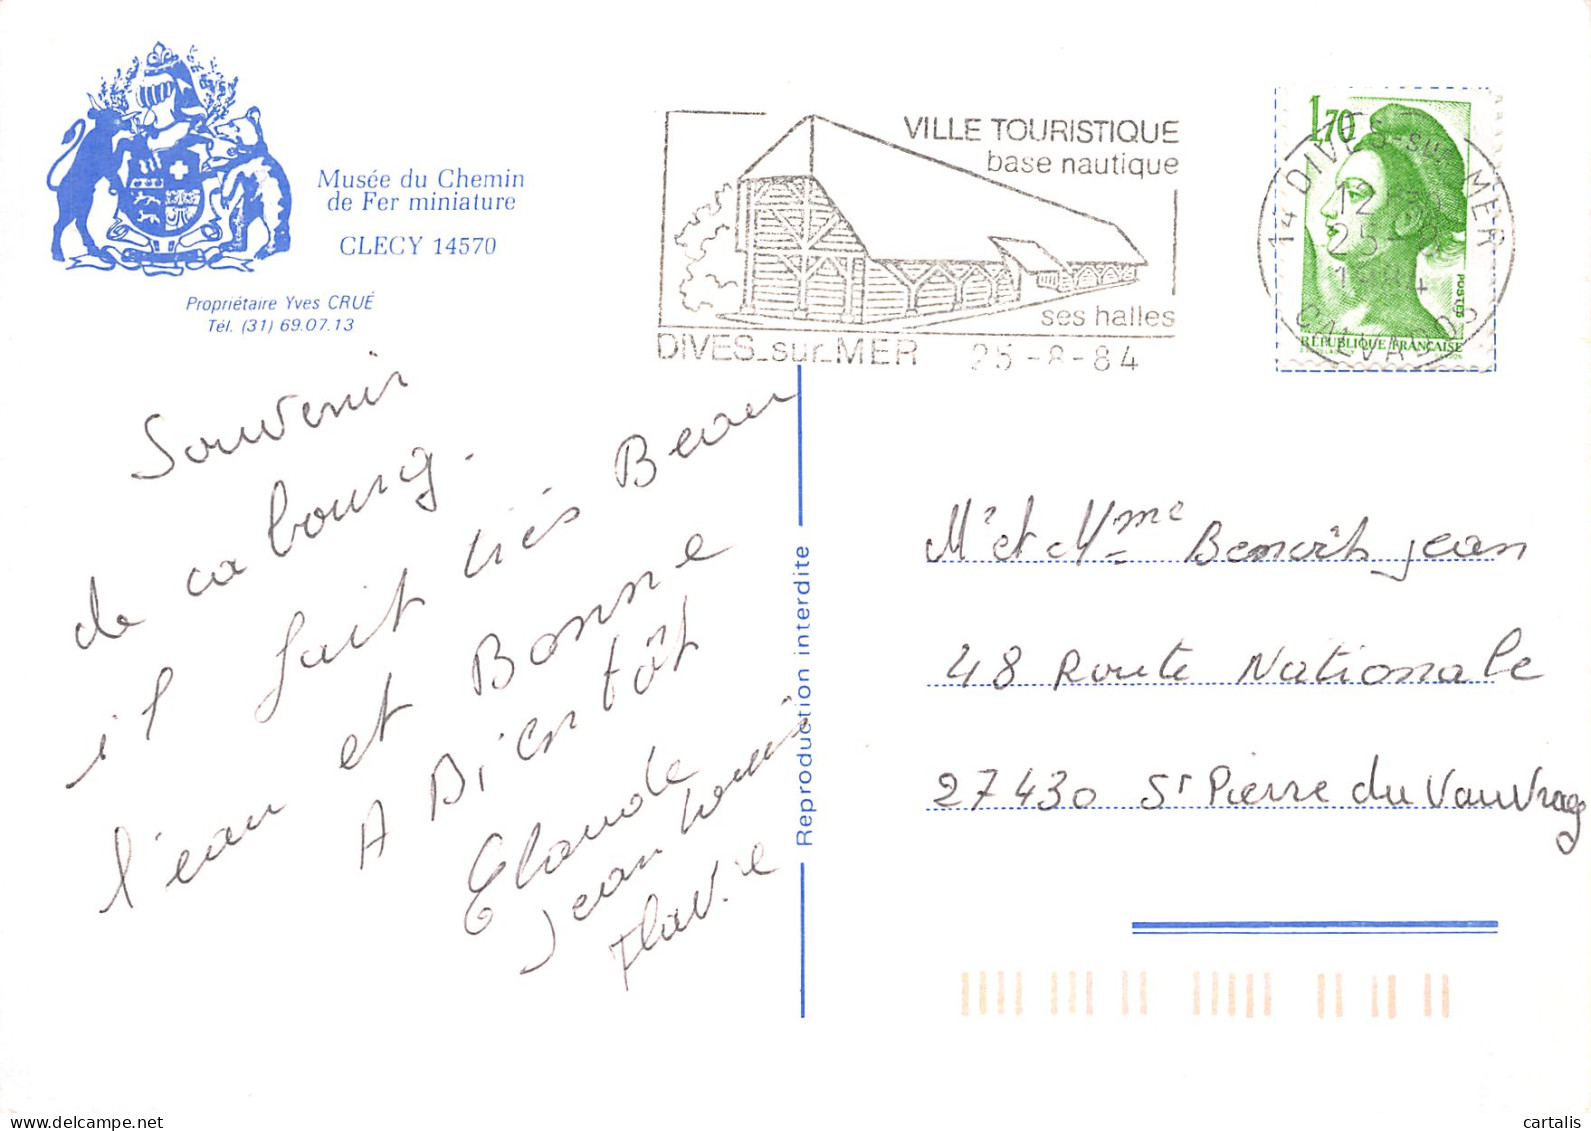 Musée du Chemin
de Fer miniature
CLECY 14570
Propriétaire Yves CRUÉ
Tél. (31) 69.07.13
VILLE TOURISTIQUE
base nautique
ses halles
DIVES-sur-MER 25-8-84
1,70
POSTES
RÉPUBLIQUE FRANÇAISE
14 DIVES-sur-MER
25-8
CALVADOS
Souvenir
de cabourg.
il fait très Beau
l'eau et Bonne
A Bientôt
Claude
Jean Louis
Flavie
Reproduction interdite
Mr et Mme Benoît jean
48 Route Nationale
27430 St Pierre du Vauvray
delcampe.net
cartalis